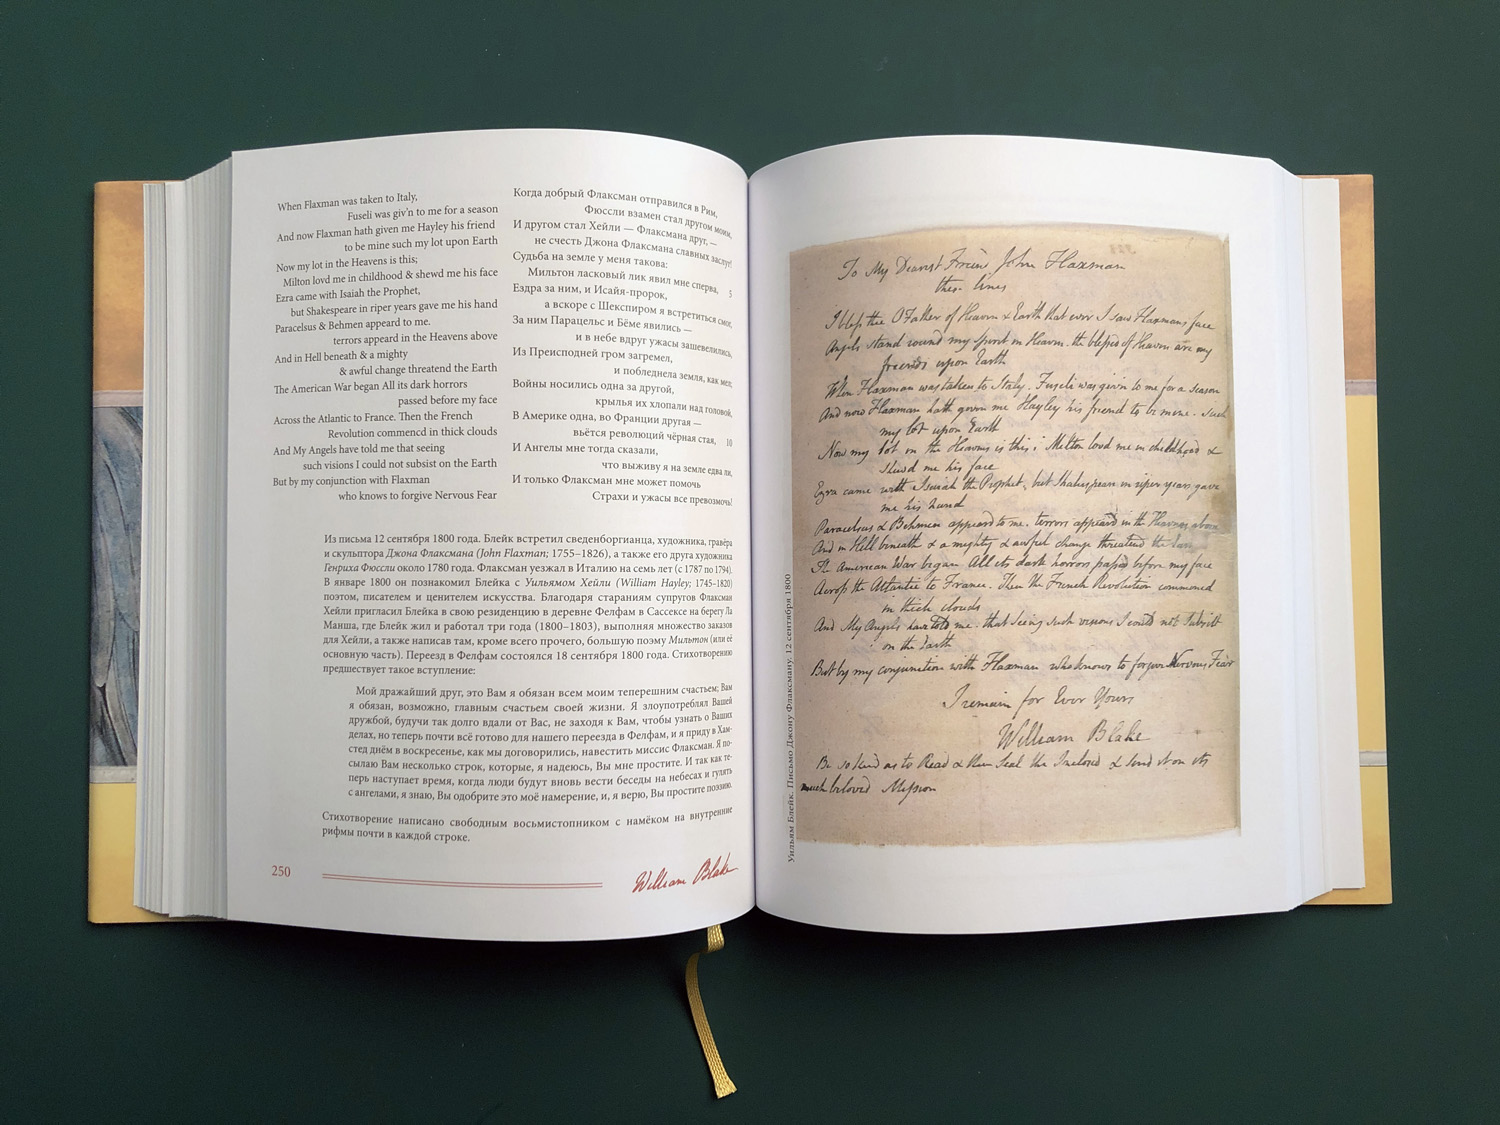 When Flaxman was taken to Italy,
Fuseli was giv'n to me for a season
And now Flaxman hath given me Hayley his friend
to be mine such my lot upon Earth
Now my lot in the Heavens is this;
Milton lovd me in childhood & shewd me his face
Ezra came with Isaiah the Prophet,
but Shakespeare in riper years gave me his hand
Paracelsus & Behmen appeard to me.
terrors appeard in the Heavens above
And in Hell beneath & a mighty
& awful change threatend the Earth
The American War began All its dark horrors
passed before my face
Across the Atlantic to France. Then the French
Revolution commencd in thick clouds
And My Angels have told me that seeing
such visions I could not subsist on the Earth
But by my conjunction with Flaxman
who knows to forgive Nervous Fear
Когда добрый Флаксман отправился в Рим,
Фюссли взамен стал другом моим,
И другом стал Хейли — Флаксмана друг, –
не счесть Джона Флаксмана славных заслуг!
Судьба на земле у меня такова:
Мильтон ласковый лик явил мне сперва, 5
Ездра за ним, и Исайя-пророк,
а вскоре с Шекспиром я встретиться смог,
За ним Парацельс и Бёме явились —
и в небе вдруг ужасы зашевелились,
Из Преисподней гром загремел,
и побледнела земля, как мел;
Войны носились одна за другой,
крылья их хлопали над головой,
В Америке одна, во Франции другая —
вьётся революций чёрная стая, 10
И Ангелы мне тогда сказали,
что выживу я на земле едва ли,
И только Флаксман мне может помочь
Страхи и ужасы все превозмочь!
Из письма 12 сентября 1800 года. Блейк встретил сведенборгианца, художника, гравёра
и скульптора Джона Флаксмана (John Flaxman; 1755–1826), а также его друга художника
Генриха Фюссли около 1780 года. Флаксман уезжал в Италию на семь лет (с 1787 по 1794).
В январе 1800 он познакомил Блейка с Уильямом Хейли (William Hayley; 1745–1820)
поэтом, писателем и ценителем искусства. Благодаря стараниям супругов Флаксман
Хейли пригласил Блейка в свою резиденцию в деревне Фелфам в Сассексе на берегу Ла
Манша, где Блейк жил и работал три года (1800–1803), выполняя множество заказов
для Хейли, а также написав там, кроме всего прочего, большую поэму Мильтон (или её
основную часть). Переезд в Фелфам состоялся 18 сентября 1800 года. Стихотворению
предшествует такое вступление:
Мой дражайший друг, это Вам я обязан всем моим теперешним счастьем; Вам
я обязан, возможно, главным счастьем своей жизни. Я злоупотреблял Вашей
дружбой, будучи так долго вдали от Вас, не заходя к Вам, чтобы узнать о Ваших
делах, но теперь почти всё готово для нашего переезда в Фелфам, и я приду в Хам-
стед днём в воскресенье, как мы договорились, навестить миссис Флаксман. Я по-
сылаю Вам несколько строк, которые, я надеюсь, Вы мне простите. И так как те-
перь наступает время, когда люди будут вновь вести беседы на небесах и гулять
с ангелами, я знаю, Вы одобрите это моё намерение, и, я верю, Вы простите поэзию.
Стихотворение написано свободным восьмистопником с намёком на внутренние
рифмы почти в каждой строке.
250
William Blake
Уильям Блейк. Письмо Джону Флаксману. 12 сентября 1800
To My Dearest Friend John Flaxman
these lines
I bless thee O Father of Heaven & Earth that ever I saw Flaxmans face
Angels stand round my Spirit in Heaven. the blessed of Heaven are my
friends upon Earth
When Flaxman was taken to Italy. Fuseli was given to me for a season
And now Flaxman hath given me Hayley his friend to be mine. such
my lot upon Earth
Now my lot in the Heavens is this; Milton lovd me in childhood &
shewd me his face
Ezra came with Isaiah the Prophet, but Shakespeare in riper years gave
me his hand
Paracelsus & Behmen appeard to me. terrors appeard in the Heavens above
And in Hell beneath & a mighty & awful change threatend the Earth
The American War began All its dark horrors passed before my face
Across the Atlantic to France. Then the French Revolution commencd
in thick clouds
And My Angels have told me. that seeing such visions I could not Subsist
on the Earth
But by my conjunction with Flaxman who knows to forgive Nervous Fear
I remain for Ever Yours
William Blake
Be so kind as to Read & then Seal the Inclosed & send it on its
much beloved Mission